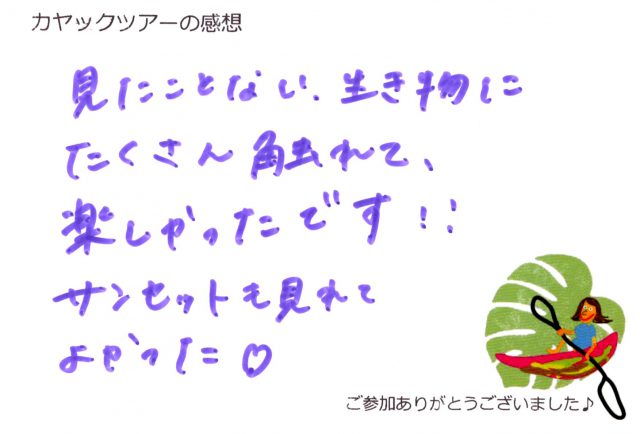 カヤックツアーの感想
見たことない、生き物に
たくさん触れて、
楽しかったです!!
サンセットも見れて
よかった♡
ご参加ありがとうございました♪